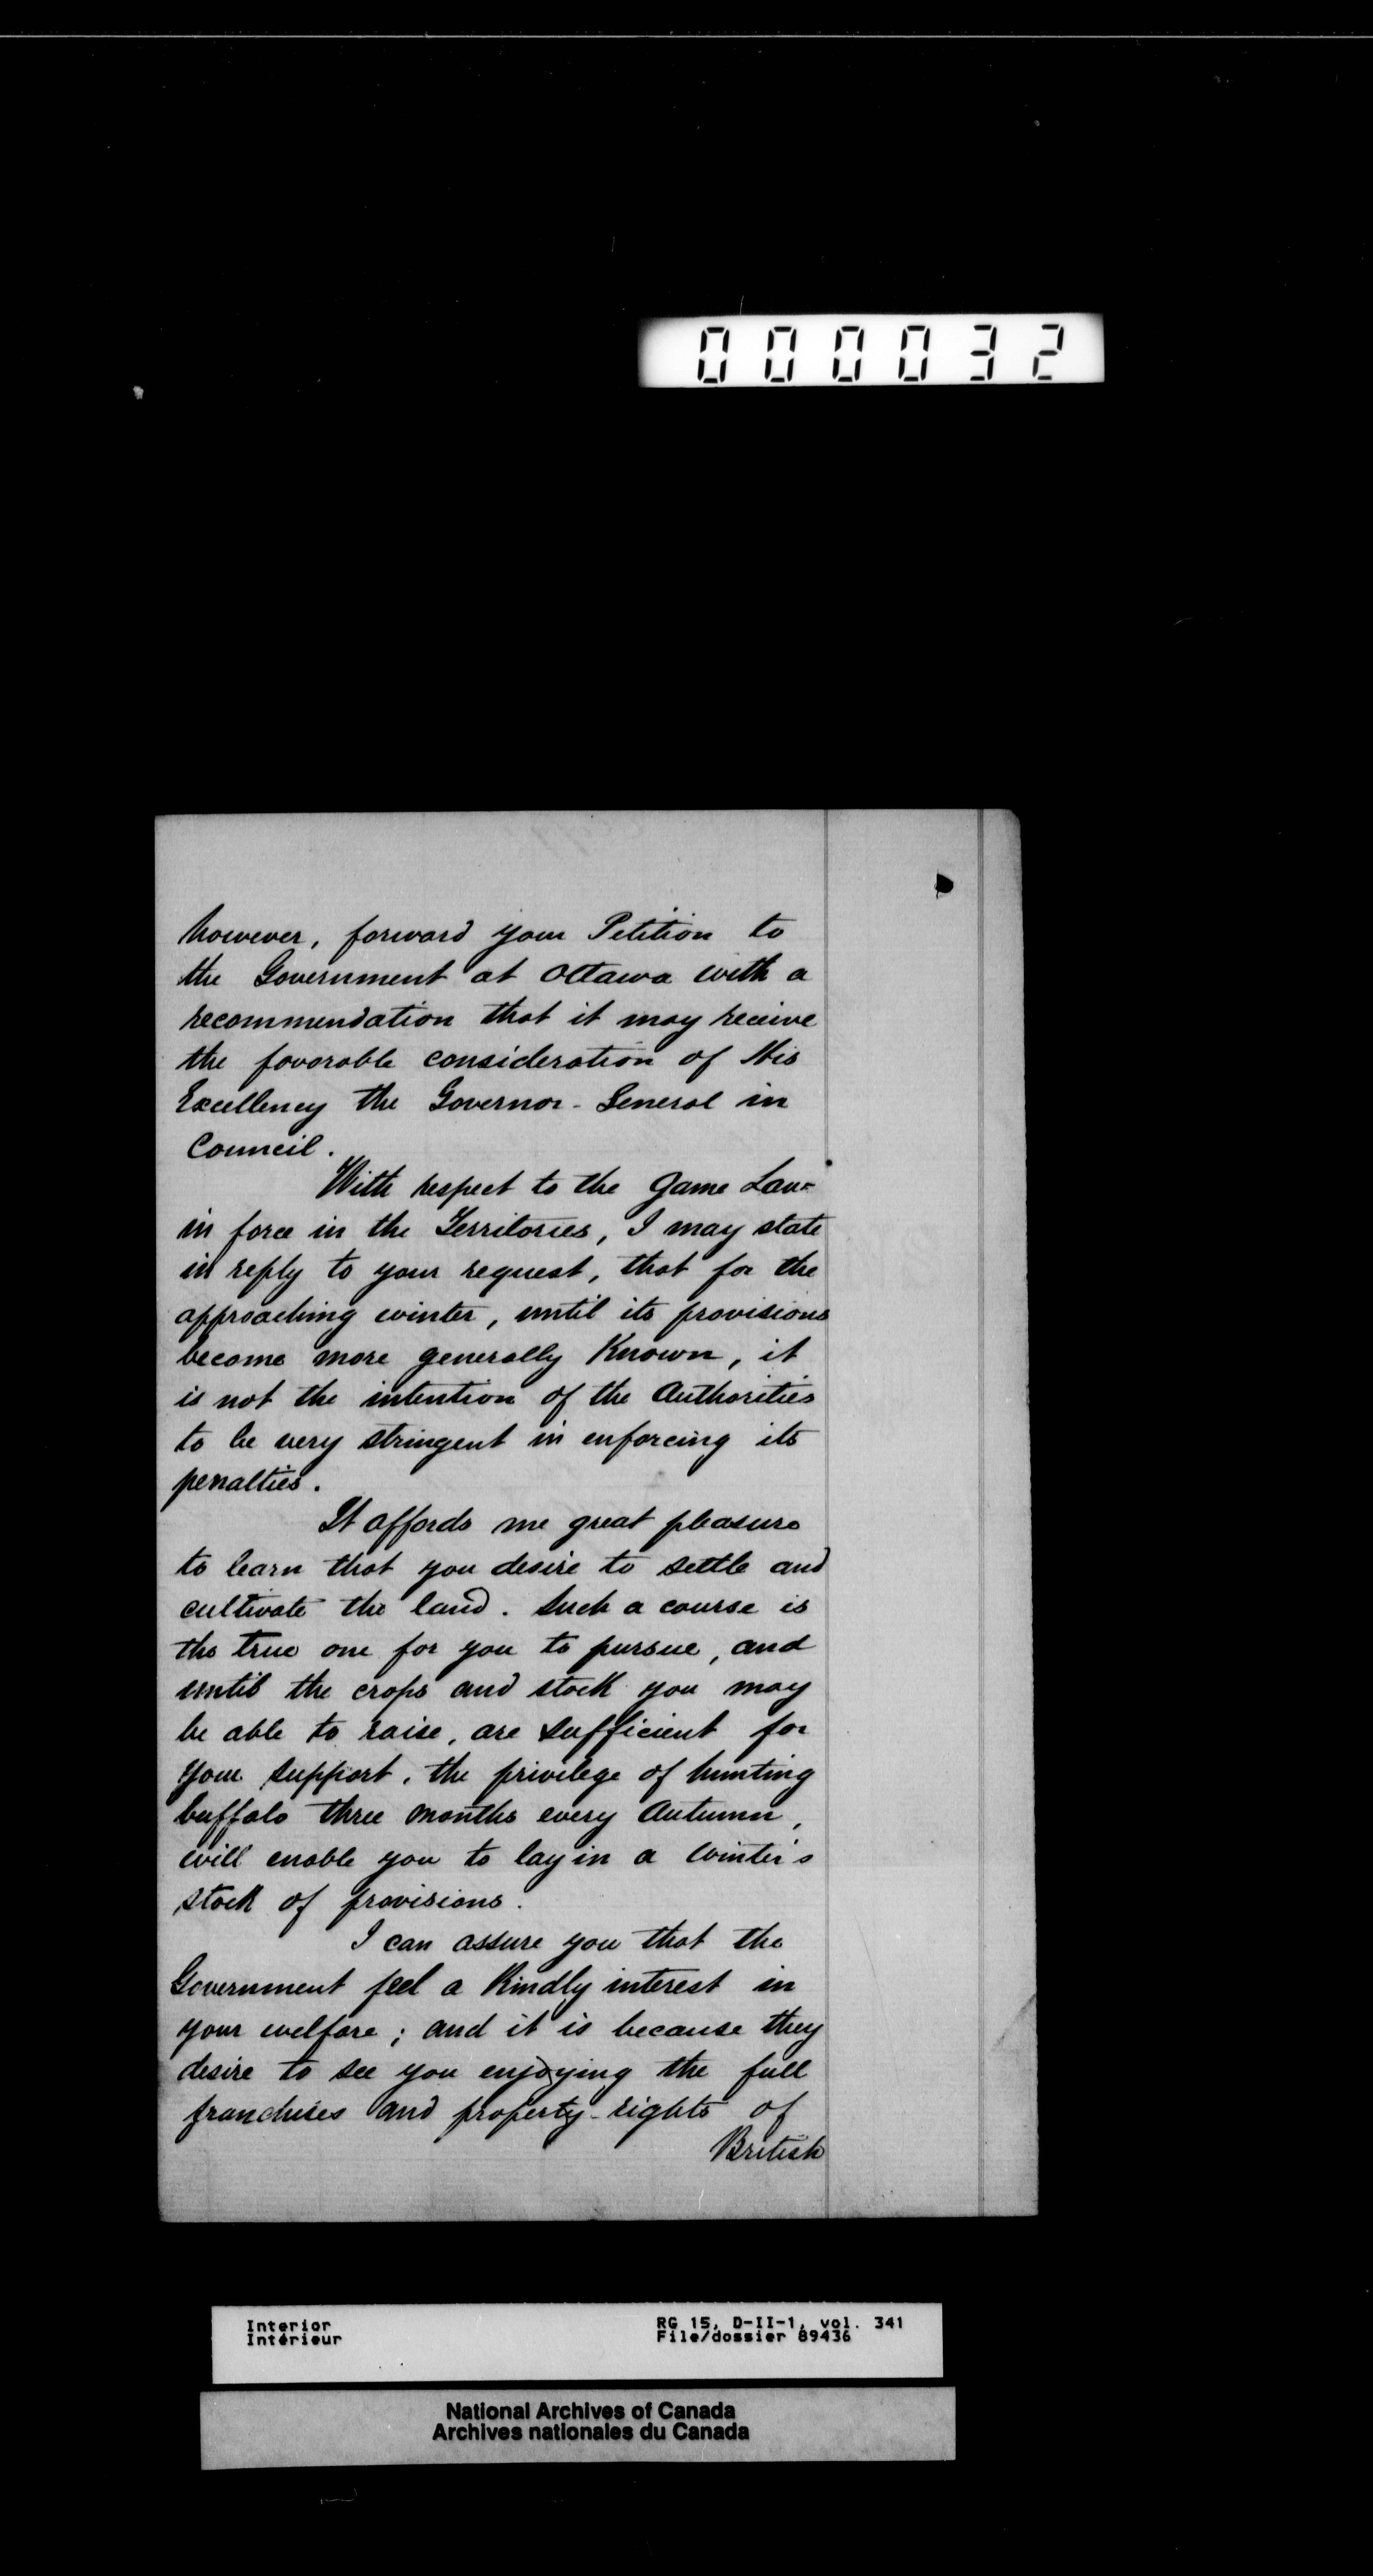 000032
however, forward your Petition to
the Government at Ottawa with a
recommendation that it may receive
the favorable consideration of His
Excellency the Governor-General in
Council.
With respect to the Game Law
in force in the Territories, I may state
in reply to your request, that for the
approaching winter, until its provisions
become more generally Known, it
is not the intention of the Authorities
to be very stringent in enforcing its
penalties.
It affords me great pleasure
to learn that you desire to settle and
cultivate the land. Such a course is
the true one for you to pursue, and
until the crops and stock you may
be able to raise, are sufficient for
your support, the privilege of hunting
buffalo three months every Autumn,
will enable you to lay in a Winter's
stock of provisions.
I can assure you that the
Government feel a Kindly interest in
your welfare; and it is because they
desire to see you enjoying the full
franchises and property-rights of
British
Interior
Intérieur
RG 15, D-II-1, vol. 341
File/dossier 89436
National Archives of Canada
Archives nationales du Canada